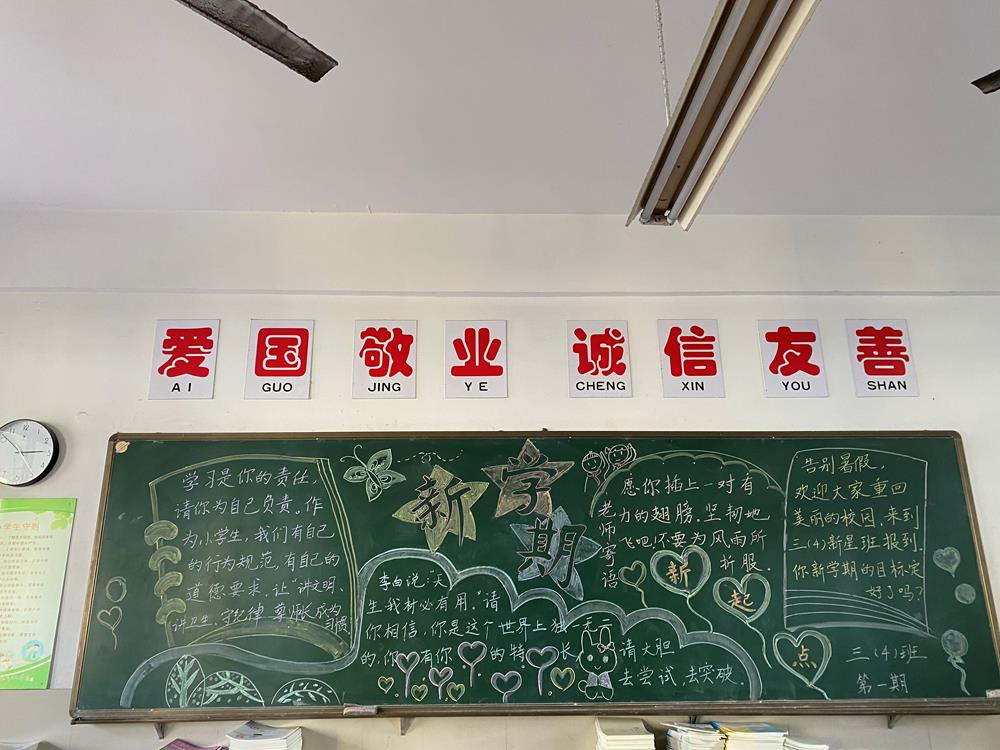 爱 国 敬 业 诚 信 友 善
AI GUO JING YE CHENG XIN YOU SHAN
小学生守则
学习是你的责任，
请你为自己负责。作
为小学生，我们有自己
的行为规范，有自己的
道德要求，让“讲文明、
讲卫生、守纪律、尊师长成为
习惯
新学期
李白说：“天
生我材必有用。”请
你相信，你是这个世界上独一无二
的，你有你的特长
请大胆
去尝试，去突破.
老师寄语
愿你插上一对有
力的翅膀，坚韧地
飞吧！不要为风雨所
折服.
新
起
点
告别暑假，
欢迎大家重回
美丽的校园，来到
三(4)新星班报到.
你新学期的目标定
好了吗？
三(4)班
第一期